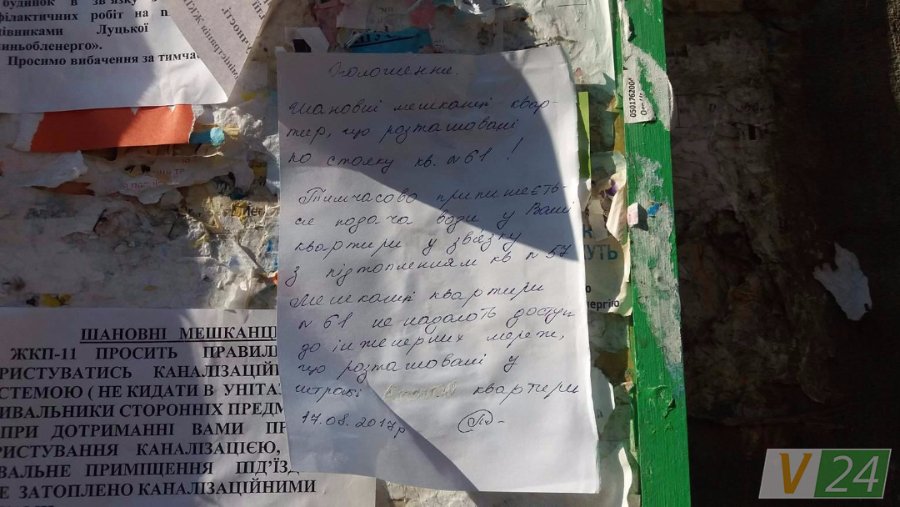 будинок в зв'язку
філактичних робіт на п
івниками Луцької
иньобленерго».
Просимо вибачення за тимча
Оголошення.
Шановні мешканці квар-
тир, що розташовані
по стояку кв. №61!
Тимчасово припиняєть-
ся подача води у Ваші
квартири у зв'язку
з підтопленням кв №57
Мешканці квартири
№61 не надають доступ
до інженерних мереж,
що розташовані у
квартири
17.08.2017р
ШАНОВНІ МЕШКАНЦІ
ЖКП-11 ПРОСИТЬ ПРАВИЛЬ
РИСТУВАТИСЬ КАНАЛІЗАЦІЙ
СТЕМОЮ ( НЕ КИДАТИ В УНІТАЗ
ИВАЛЬНИКИ СТОРОННІХ ПРЕДМ
ПРИ ДОТРИМАННІ ВАМИ ПР
РИСТУВАННЯ КАНАЛІЗАЦІЄЮ,
ВАЛЬНЕ ПРИМІЩЕННЯ ПІД'ЇЗД
Е ЗАТОПЛЕНО КАНАЛІЗАЦІЙНИМИ
УТЬ
V 24